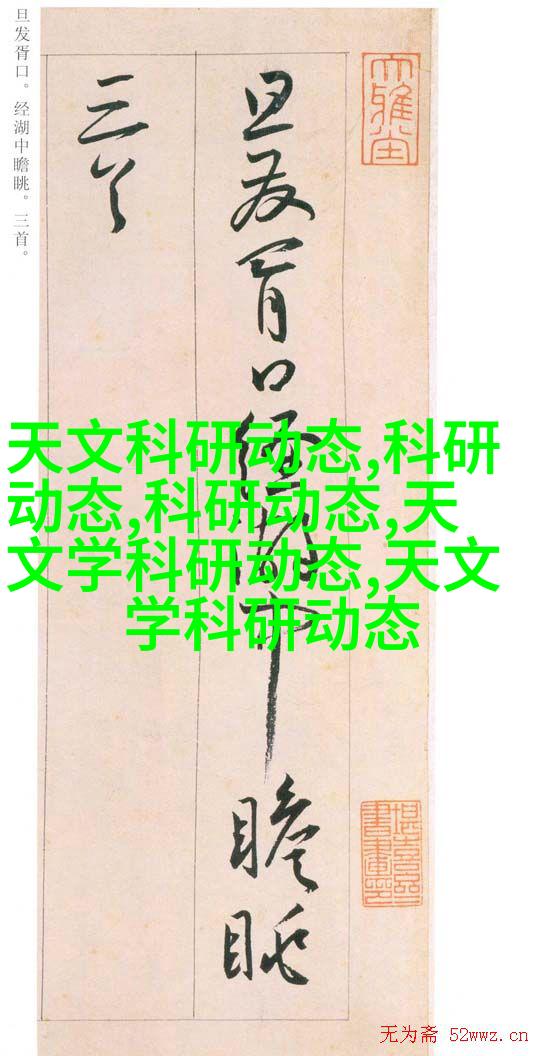 旦发胥口。经湖中瞻眺。三首。
旦发胥口经湖中瞻眺
三首
大雅堂
天文科研动态,科研
动态,科研动态,天
文学科研动态,天文
学科研动态
无为斋 52wwz.cn